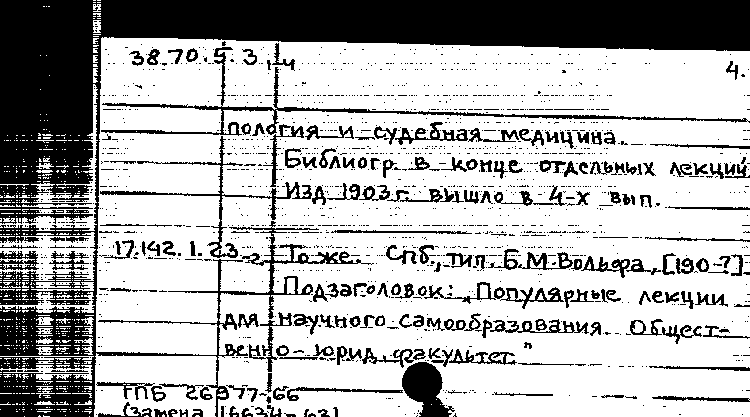 38.70.5.3
4.
пология и судебная медицина.
Библиогр. в конце отдельных лекций
Изд. 1903 г. вышло в 4-х вып.
17.142.1.23 То же. Спб., тип. Б.М.Вольфа, [190-?]
Подзаголовок: „Популярные лекции
для научного самообразования. Общест-
венно-юрид. факультет."
ГПБ 26977-66
(Замена 16634-63)